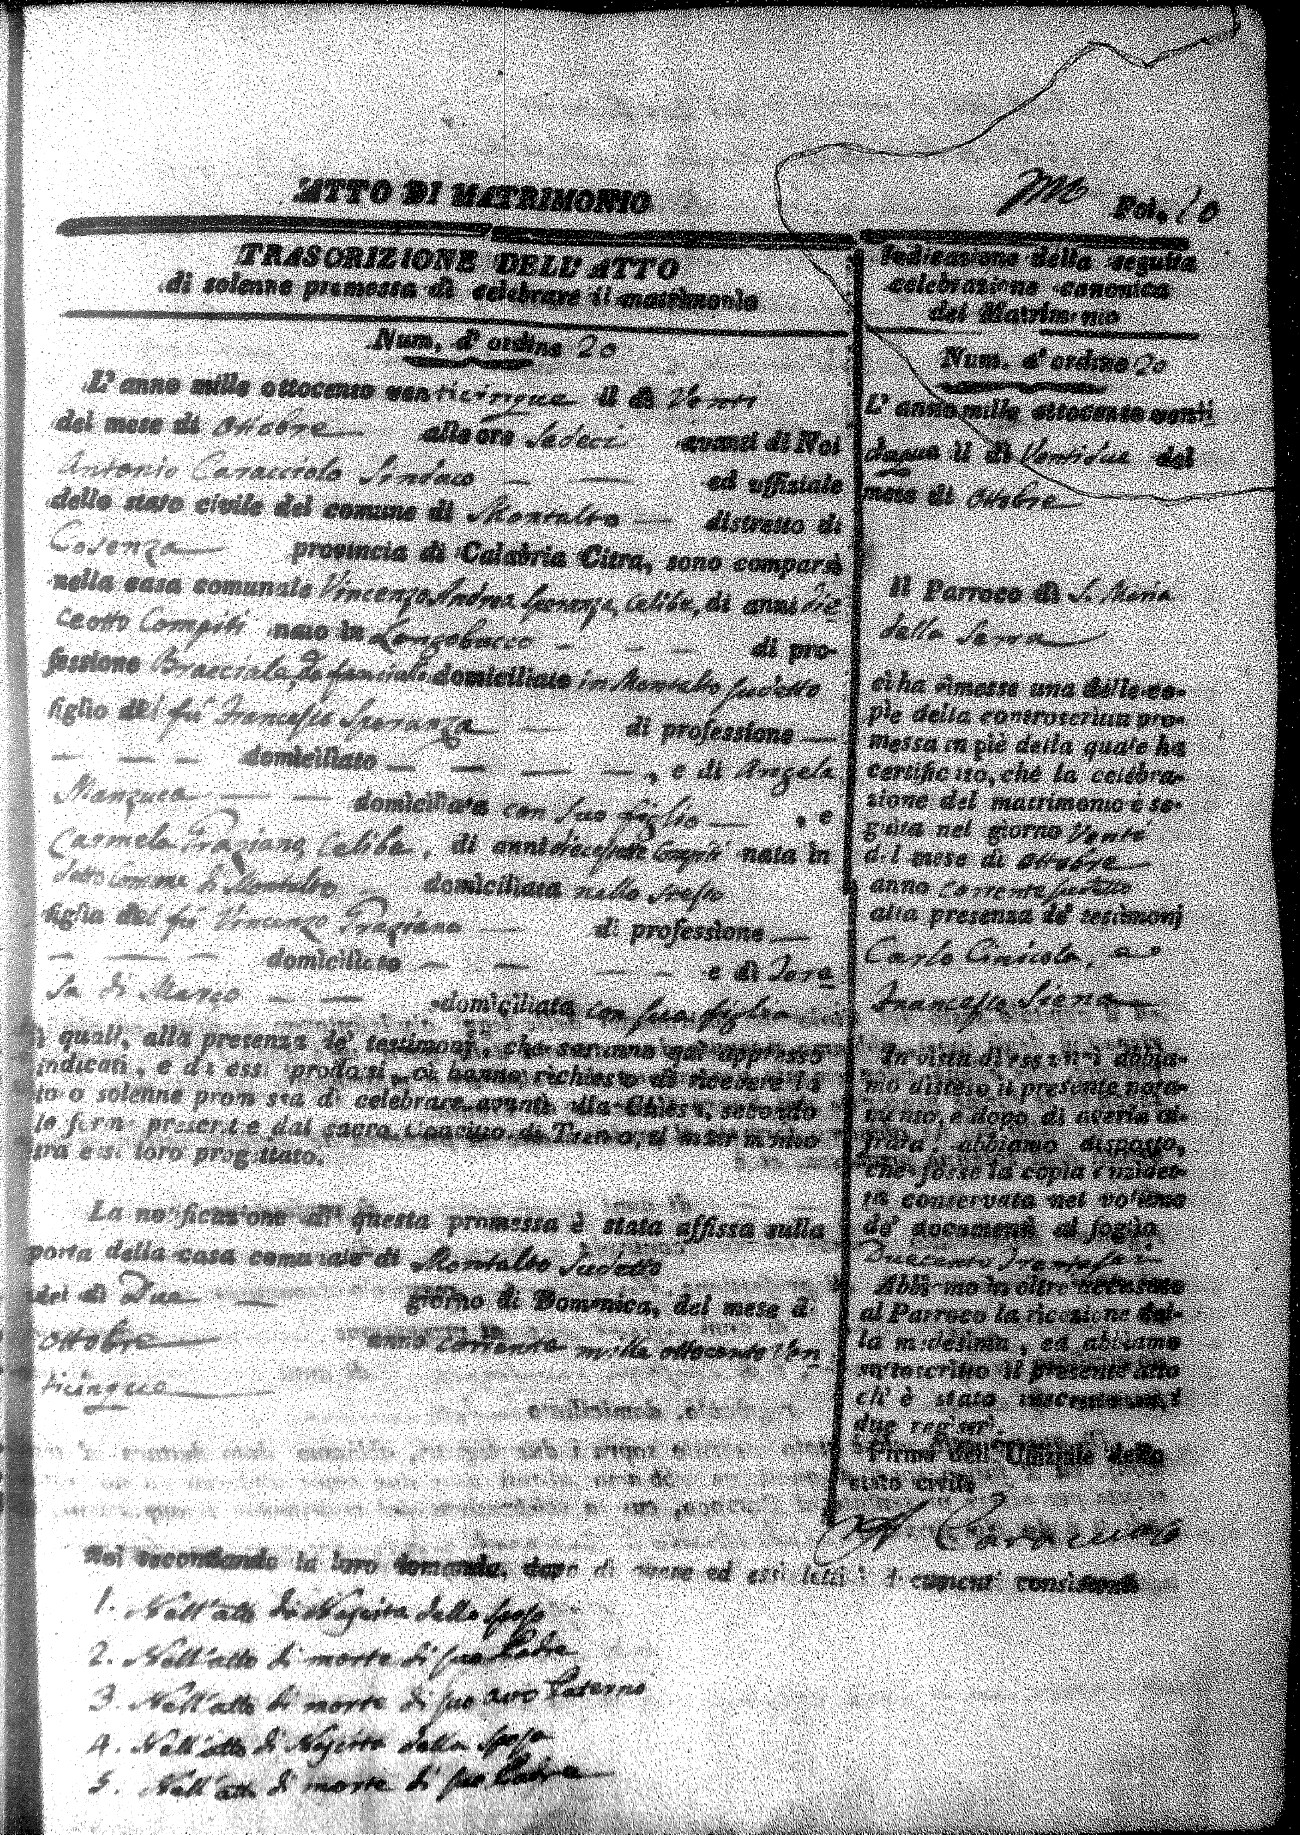 ATTO DI MATRIMONIO
Fol. 20
TRASCRIZIONE DELL' ATTO
di solenne promessa di celebrare il matrimonio
Num. d' ordine 20
L' anno mille ottocento venticinque il dì Venti
del mese di Ottobre alle ore Sedeci avanti di Noi
Antonio Caracciolo Sindaco ed uffiziale
dello stato civile del comune di Montalto distretto di
Cosenza provincia di Calabria Citra, sono comparsi
nella casa comunale Vincenzo Andrea Speranza, Celibe, di anni Die
ceotto Compiti nato in Longobucco di pro-
fessione Bracciale, domiciliato in Montalto sudetto
figlio del fu Francesco Speranza di professione
domiciliato , e di Angela
Manzuca domiciliata con suo figlio , e
Carmela Graziano, Celibe, di anni diecesette Compiti nata in
detto Comune di Montalto domiciliata nello stesso
figlia del fu Vincenzo Graziano di professione
domiciliato e di Tere
sa di Marco domiciliata con sua figlia
i quali, alla presenza de' testimonj, che saranno qui appresso
indicati, e da essi prodotti, ci hanno richiesto di ricevere la
loro solenne promessa di celebrare avanti alla Chiesa, secondo
le forme prescritte dal sacro Concilio di Trento, il matrimonio
tra essi loro progettato.
La notificazione di questa promessa è stata affissa sulla
porta della casa comunale di Montalto Sudetto
del dì Due giorno di Domenica, del mese d
Ottobre anno corrente mille ottocento Ven
ticinque
Indicazione della seguita
celebrazione canonica
del Matrimonio
Num. d' ordine 20
L' anno mille ottocento venti
cinque il dì Ventidue del
mese di Ottobre
Il Parroco di S. Maria
della Serra
ci ha rimesso una delle co-
pie della controscritta pro-
messa in piè della quale ha
certificato, che la celebra-
zione del matrimonio è se-
guita nel giorno Venti
del mese di Ottobre
anno corrente sudetto
alla presenza de' testimonj
Carlo Ciniola, e
Francesco Siena
In vista di essa noi abbia-
mo disteso il presente nota-
mento, e dopo di averla ci-
frata, abbiamo disposto,
che fosse la copia anzidet-
ta conservata nel volume
de' documenti al foglio
Duecento Trentasei
Abbiamo in oltre accusato
al Parroco la ricezione del-
la medesima, ed abbiamo
sottoscritto il presente atto
ch' è stato inscritto sui
due registri.
Firma dell' Uffiziale dello
stato civile
A Caracciolo
Noi secondando la loro domanda, dopo di avere ad essi letti i documenti consistenti
1. Nell'atto di Nascita dello sposo
2. Nell'atto di morte di suo Padre
3. Nell'atto di morte di suo avo Paterno
4. Nell'atto di Nascita della sposa
5. Nell'atto di morte di suo Padre